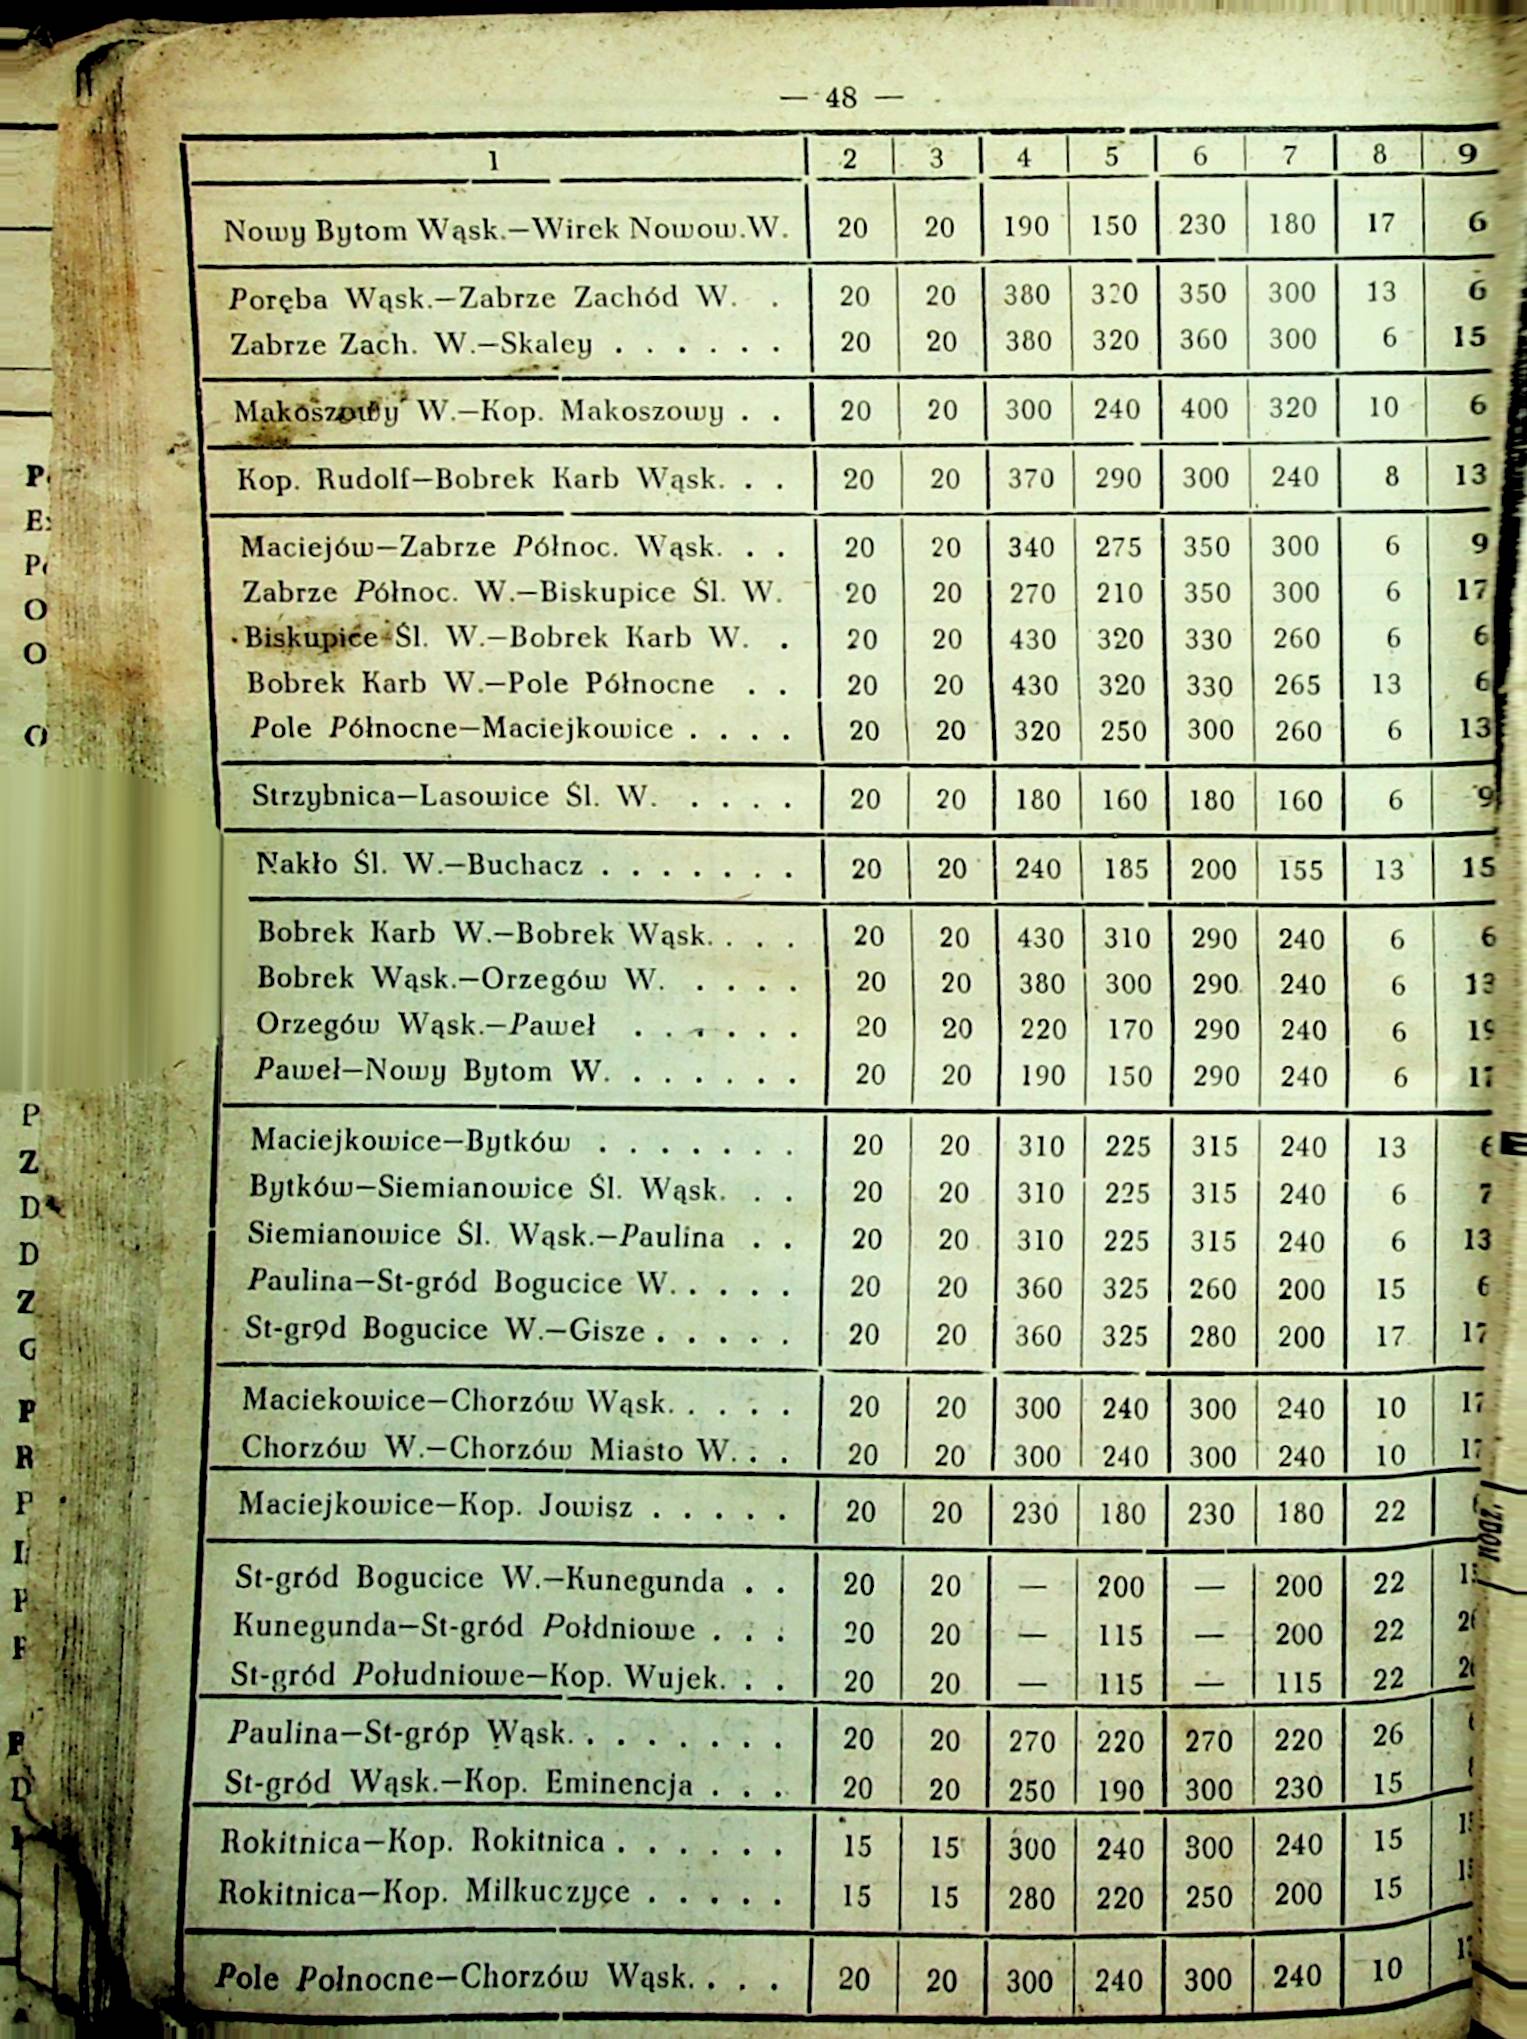 — 48 —
1 2 3 4 5 6 7 8 9
Nowy Bytom Wąsk.—Wirek Nowow.W. 20 20 190 150 230 180 17 6
Poręba Wąsk.—Zabrze Zachód W. . 20 20 380 320 350 300 13 6
Zabrze Zach. W.—Skaley . . . . . . 20 20 380 320 360 300 6 15
Makoszowy W.—Kop. Makoszowy . . 20 20 300 240 400 320 10 6
Kop. Rudolf—Bobrek Karb Wąsk. . . 20 20 370 290 300 240 8 13
Maciejów—Zabrze Północ. Wąsk. . . 20 20 340 275 350 300 6 9
Zabrze Północ. W.—Biskupice Śl. W. 20 20 270 210 350 300 6 17
Biskupice Śl. W.—Bobrek Karb W. . 20 20 430 320 330 260 6 6
Bobrek Karb W.—Pole Północne . . 20 20 430 320 330 265 13 6
Pole Północne—Maciejkowice . . . . 20 20 320 250 300 260 6 13
Strzybnica—Lasowice Śl. W. . . . . 20 20 180 160 180 160 6 9
Nakło Śl. W.—Buchacz . . . . . . . 20 20 240 185 200 155 13 15
Bobrek Karb W.—Bobrek Wąsk. . . . 20 20 430 310 290 240 6 6
Bobrek Wąsk.—Orzegów W. . . . . 20 20 380 300 290 240 6 13
Orzegów Wąsk.—Paweł . . . . . . 20 20 220 170 290 240 6 19
Paweł—Nowy Bytom W. . . . . . . 20 20 190 150 290 240 6
Maciejkowice—Bytków . . . . . . . 20 20 310 225 315 240 13
Bytków—Siemianowice Śl. Wąsk. . . 20 20 310 225 315 240 6 7
Siemianowice Śl. Wąsk.—Paulina . . 20 20 310 225 315 240 6 13
Paulina—St-gród Bogucice W. . . . . 20 20 360 325 260 200 15
St-gr9d Bogucice W.—Gisze . . . . . 20 20 360 325 280 200 17 17
Maciekowice—Chorzów Wąsk. . . . . 20 20 300 240 300 240 10
Chorzów W.—Chorzów Miasto W. . . 20 20 300 240 300 240 10
Maciejkowice—Kop. Jowisz . . . . . 20 20 230 180 230 180 22
St-gród Bogucice W.—Kunegunda . . 20 20 — 200 — 200 22
Kunegunda—St-gród Połdniowe . . . 20 20 — 115 — 200 22
St-gród Południowe—Kop. Wujek. . . 20 20 — 115 — 115 22
Paulina—St-gróp Wąsk. . . . . . . . 20 20 270 220 270 220 26
St-gród Wąsk.—Kop. Eminencja . . . 20 20 250 190 300 230 15
Rokitnica—Kop. Rokitnica . . . . . . 15 15 300 240 300 240 15
Rokitnica—Kop. Milkuczyçe . . . . . 15 15 280 220 250 200 15
Pole Połnocne—Chorzów Wąsk. . . . 20 20 300 240 300 240 10